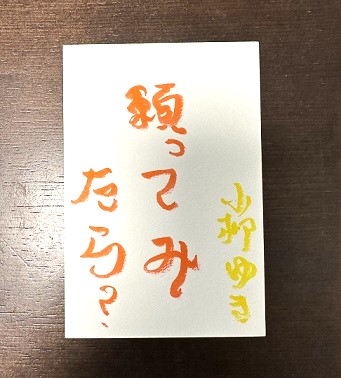 小柳ゆき
頼ってみ
たら?